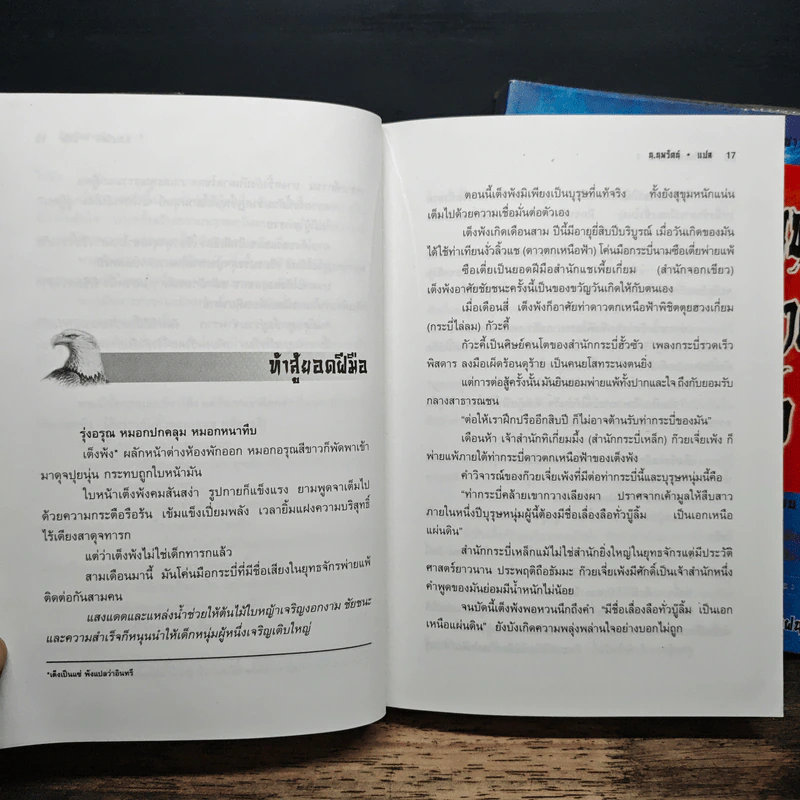 ท้าสู้ยอดฝีมือ
รุ่งอรุณ หมอกปกคลุม หมอกหนาทึบ
เต็งพัง* ผลักหน้าต่างห้องพักออก หมอกอรุณสีขาวก็พัดพาเข้า
มาดุจปุยนุ่น กระทบถูกใบหน้ามัน
ใบหน้าเต็งพังคมสันสง่า รูปกายก็แข็งแรง ยามพูดจาเต็มไป
ด้วยความกระตือรือร้น เข้มแข็งเปี่ยมพลัง เวลายิ้มแฝงความบริสุทธิ์
ไร้เดียงสาดุจทารก
แต่ว่าเต็งพังไม่ใช่เด็กทารกแล้ว
สามเดือนมานี้ มันโค่นมือกระบี่ที่มีชื่อเสียงในยุทธจักรพ่ายแพ้
ติดต่อกันสามคน
แสงแดดและแหล่งน้ำช่วยให้ต้นไม้ใบหญ้าเจริญงอกงาม ชัยชนะ
และความสำเร็จก็หนุนนำให้เด็กหนุ่มผู้หนึ่งเจริญเติบใหญ่
*เต็งเป็นแซ่ พังแปลว่าอินทรี
น.นพรัตน์ • แปล 17
ตอนนี้เต็งพังมิเพียงเป็นบุรุษที่แท้จริง ทั้งยังสุขุมหนักแน่น
เต็มไปด้วยความเชื่อมั่นต่อตัวเอง
เต็งพังเกิดเดือนสาม ปีนี้มีอายุยี่สิบปีบริบูรณ์ เมื่อวันเกิดของมัน
ได้ใช้ท่าเทียนงั่วลิ้วแช (ดาวตกเหนือฟ้า) โค่นมือกระบี่นามซือเตี่ยพ่ายแพ้
ซือเตี่ยเป็นยอดฝีมือสำนักแชเพี้ยเกี่ยม (สำนักจอกเขียว)
เต็งพังอาศัยชัยชนะครั้งนี้เป็นของขวัญวันเกิดให้กับตนเอง
เมื่อเดือนสี่ เต็งพังก็อาศัยท่าดาวตกเหนือฟ้าพิชิตตุยฮวงเกี่ยม
(กระบี่ไล่ลม) กัวะคี้
กัวะคี้เป็นศิษย์คนโตของสำนักกระบี่ฮั้วซัว เพลงกระบี่รวดเร็ว
พิสดาร ลงมือเผ็ดร้อนดุร้าย เป็นคนยโสทระนงตนยิ่ง
แต่การต่อสู้ครั้งนั้นมันยินยอมพ่ายแพ้ทั้งปากและใจ ถึงกับยอมรับ
กลางสาธารณชน
"ต่อให้เราฝึกปรืออีกสิบปี ก็ไม่อาจต้านรับท่ากระบี่ของมัน"
เดือนห้า เจ้าสำนักทิเกี่ยมมึ้ง (สำนักกระบี่เหล็ก) ก๊วยเจี่ยเพ้ง ก็
พ่ายแพ้ภายใต้ท่ากระบี่ดาวตกเหนือฟ้าของเต็งพัง
คำวิจารณ์ของก๊วยเจี่ยเพ้งที่มีต่อท่ากระบี่นี้และบุรุษหนุ่มนี้คือ
"ท่ากระบี่คล้ายเขากวางเลียงผา ปราศจากเค้ามูลให้สืบสาว
ภายในหนึ่งปีบุรุษหนุ่มผู้นี้ต้องมีชื่อเลื่องลือทั่วบู๊ลิ้ม เป็นเอกเหนือ
แผ่นดิน"
สำนักกระบี่เหล็กแม้ไม่ใช่สำนักยิ่งใหญ่ในยุทธจักรแต่มีประวัติ
ศาสตร์ยาวนาน ประพฤติถือธัมมะ ก๊วยเจี่ยเพ้งมีศักดิ์เป็นเจ้าสำนักหนึ่ง
คำพูดของมันย่อมมีน้ำหนักไม่น้อย
จนบัดนี้เต็งพังพอหวนนึกถึงคำ "มีชื่อเลื่องลือทั่วบู๊ลิ้ม เป็นเอก
เหนือแผ่นดิน" ยังบังเกิดความพลุ่งพล่านใจอย่างบอกไม่ถูก